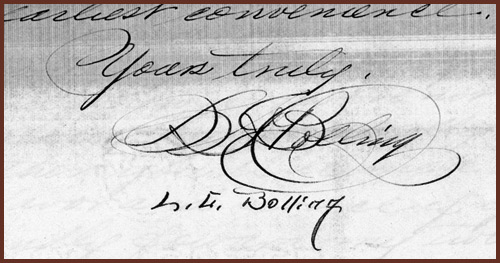 earliest convenience.
Yours truly,
Bolling
Bolling